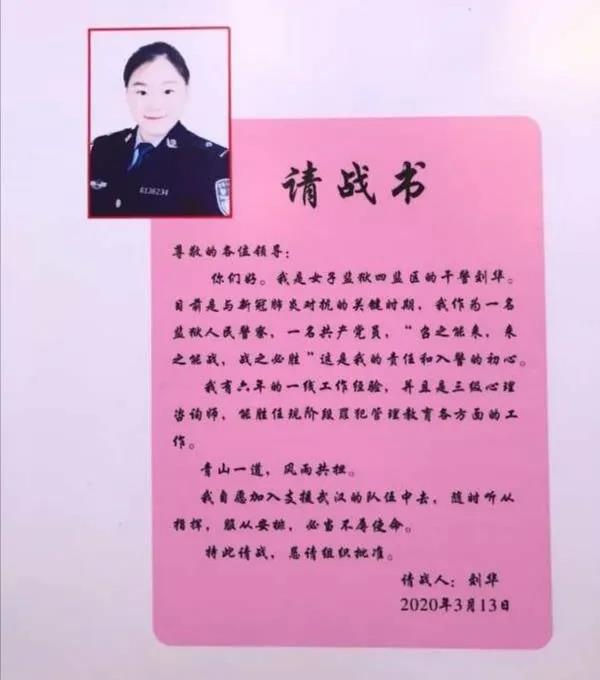 6136234
请战书
尊敬的各位领导：
你们好。我是女子监狱四监区的干警刘华。
目前是与新冠肺炎对抗的关键时期，我作为一名
监狱人民警察，一名共产党员，“召之能来，来
之能战，战之必胜”这是我的责任和入警的初心。
我有六年的一线工作经验，并且是三级心理
咨询师，能胜任现阶段罪犯管理教育各方面的工
作。
青山一道，风雨共担。
我自愿加入支援武汉的队伍中去，随时听从
指挥，服从安排，必当不辱使命。
特此请战，恳请组织批准。
请战人：刘华
2020年3月13日